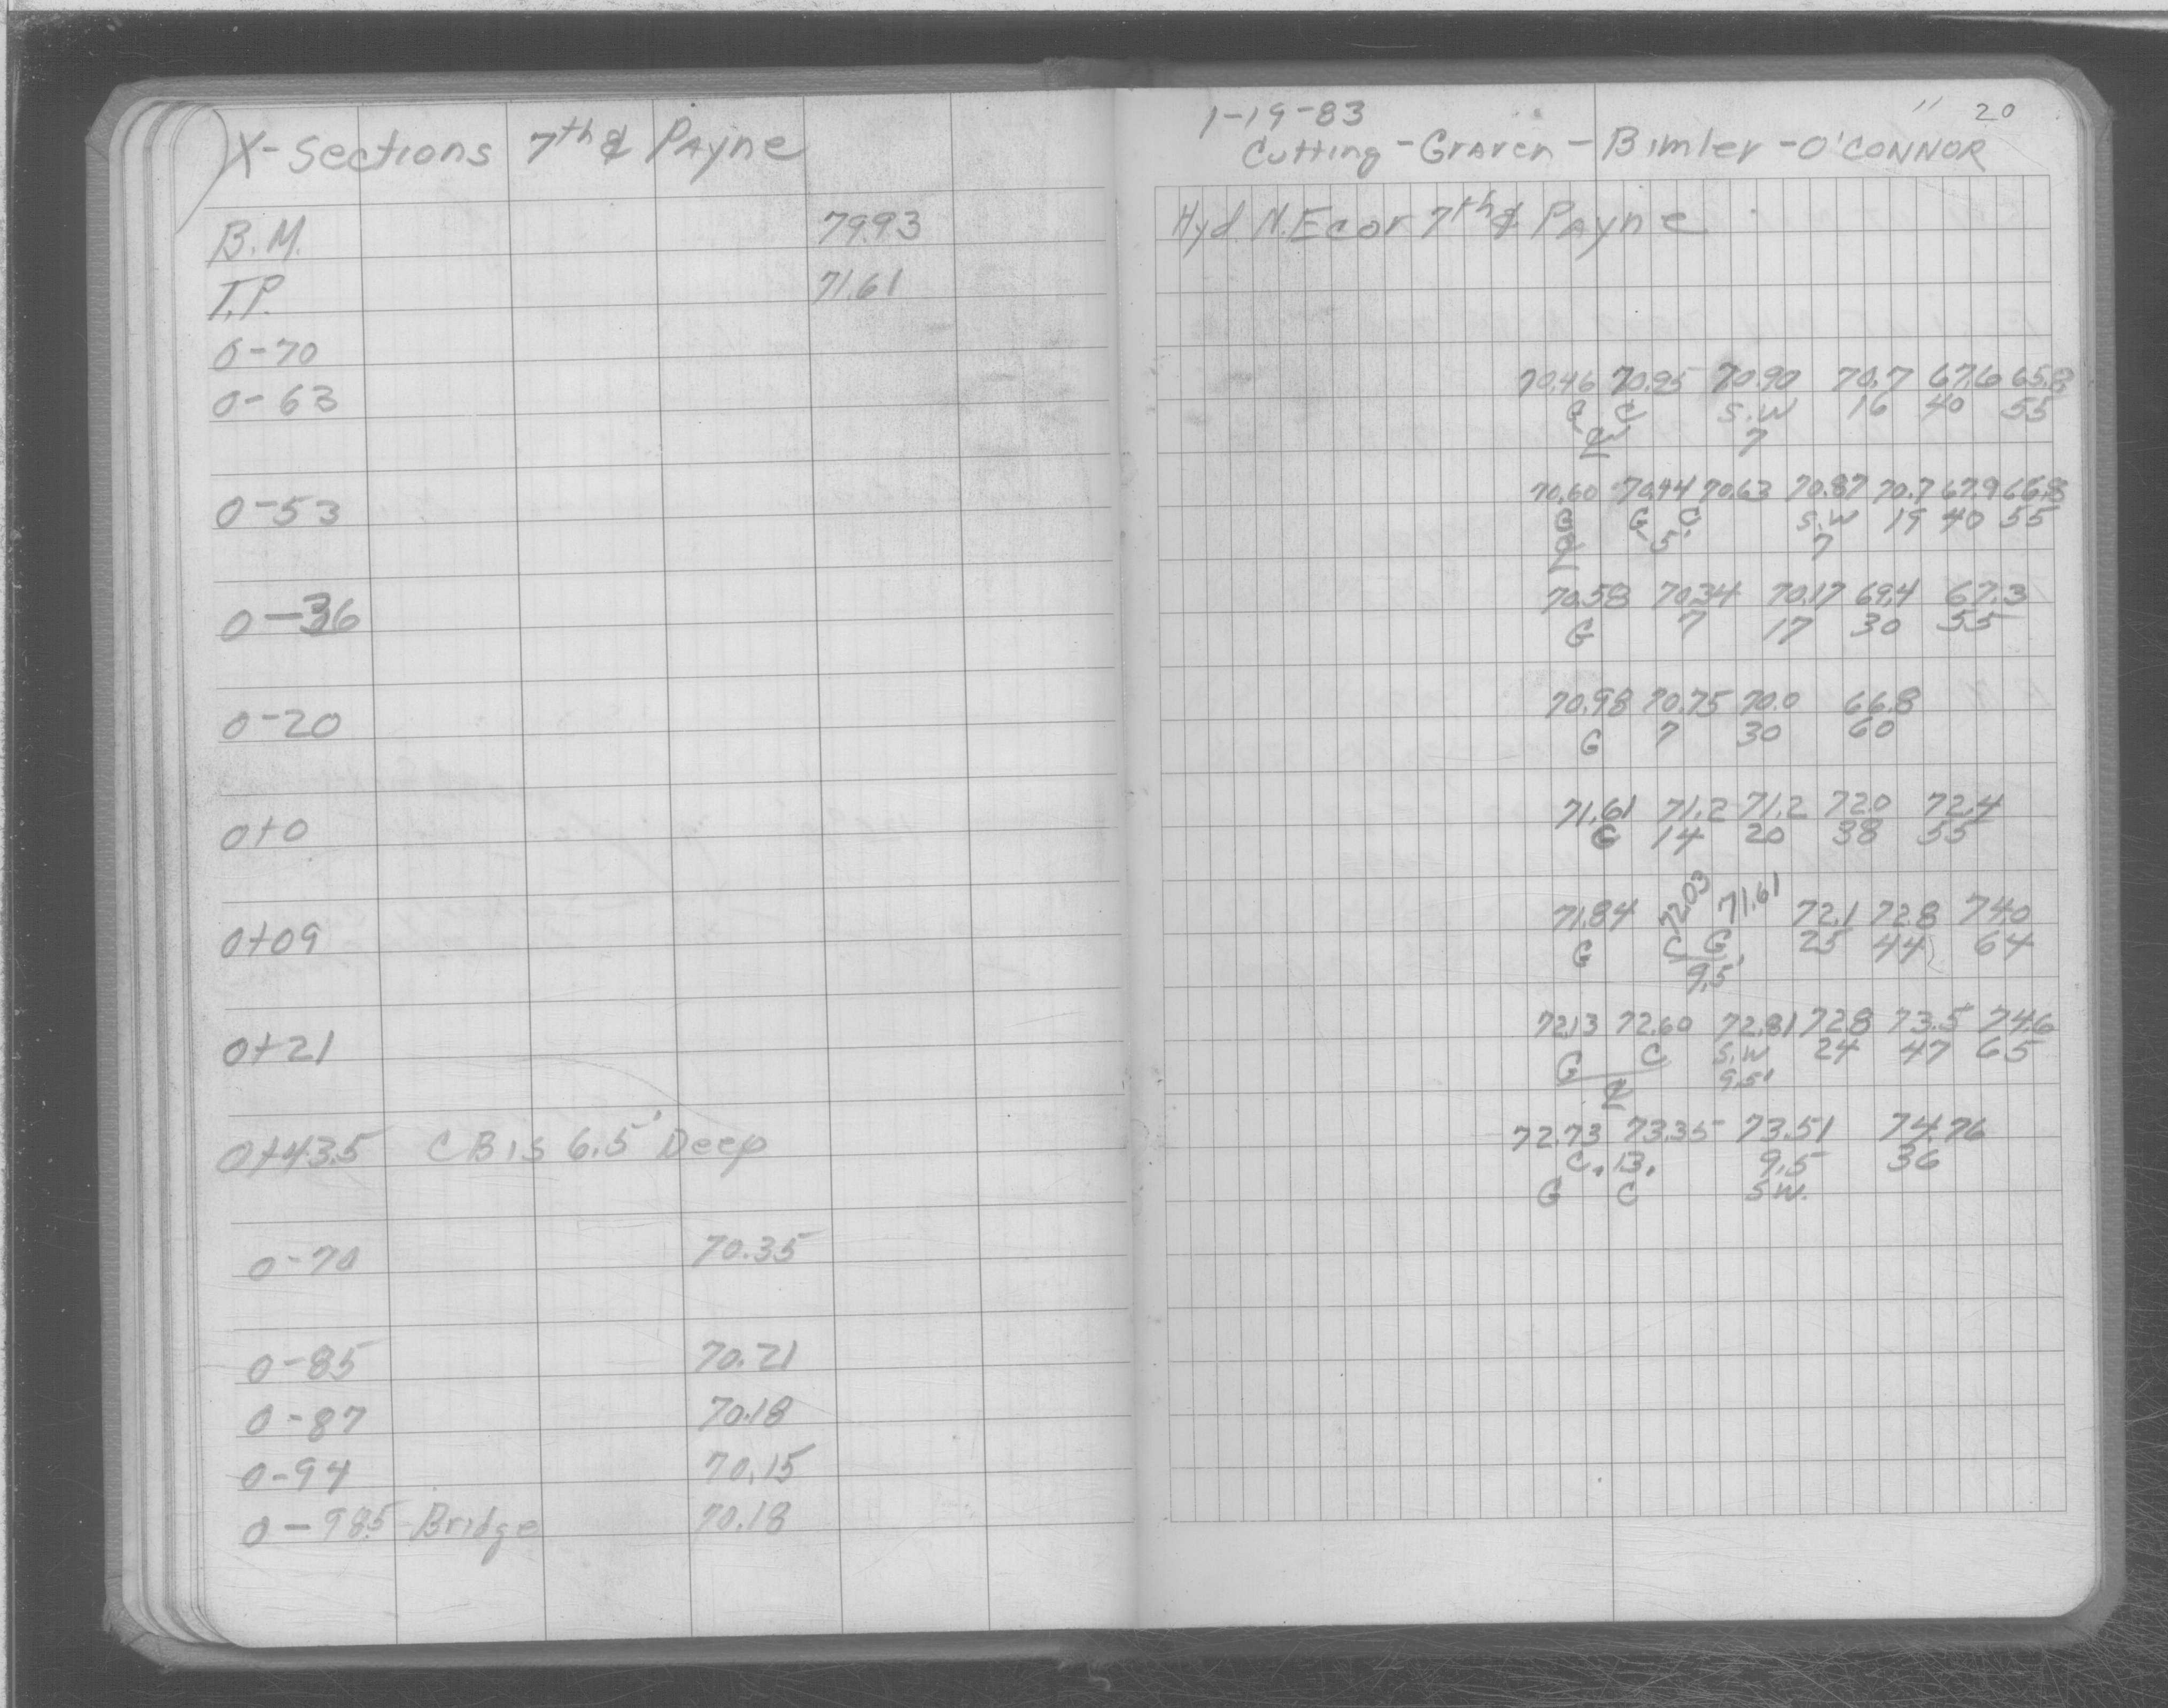 X-Sections 7th & Payne
B.M. 79.93
T.P. 71.61
0-70
0-63
0-53
0-36
0-20
0+0
0+09
0+21
0+43.5 CB is 6.5' Deep
0-70 70.35
0-85 70.21
0-87 70.18
0-94 70.15
0-98.5 Bridge 70.18
1-19-83 " 20
Cutting - Graven - Bimler - O'CONNOR
Hyd N.E cor 7th & Payne
70.46 70.95 70.90 70.7 67.6 65.8
G C S.W 16 40 55
7
70.60 70.44 70.63 70.87 70.7 67.9 66.8
G G C S.W 19 40 55
5' 7
70.58 70.34 70.17 69.4 67.3
G 7 17 30 55
70.98 70.75 70.0 66.8
G 7 30 60
71.61 71.2 71.2 72.0 72.4
G 14 20 38 55
71.84 72.03 71.61 72.1 72.8 74.0
G C G 25 44 64
9.5'
72.13 72.60 72.81 72.8 73.5 74.6
G C S.W 24 47 65
9.5'
72.73 73.35 73.51 74.76
C.B. 9.5 36
G C S.W.